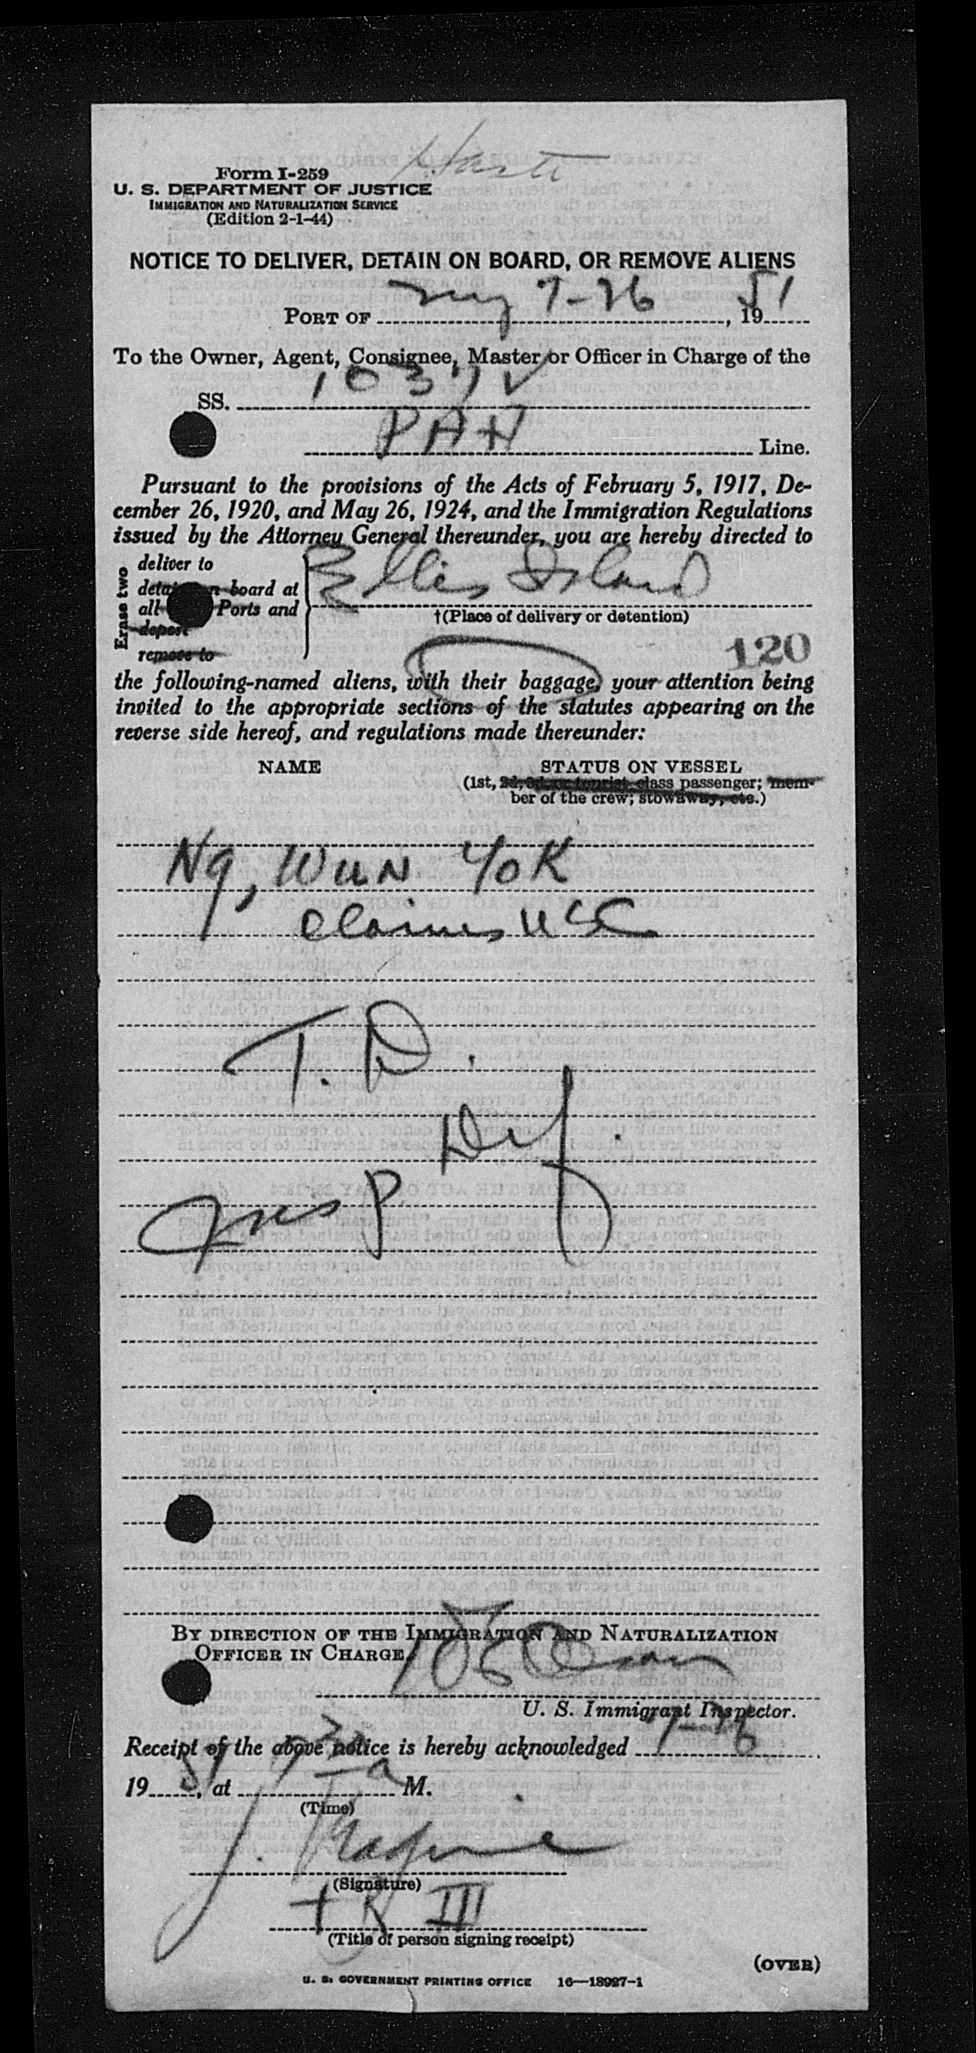 Form I-259
U. S. DEPARTMENT OF JUSTICE
IMMIGRATION AND NATURALIZATION SERVICE
(Edition 2-1-44)
NOTICE TO DELIVER, DETAIN ON BOARD, OR REMOVE ALIENS
PORT OF ny 7-26, 1951
To the Owner, Agent, Consignee, Master or Officer in Charge of the
SS. 1037 V
PAA Line.
Pursuant to the provisions of the Acts of February 5, 1917, De-
cember 26, 1920, and May 26, 1924, and the Immigration Regulations
issued by the Attorney General thereunder, you are hereby directed to
Erase two
deliver to
detain on board at
all Ports and
depost
remove to
Ellis Island
†(Place of delivery or detention)
120
the following-named aliens, with their baggage, your attention being
invited to the appropriate sections of the statutes appearing on the
reverse side hereof, and regulations made thereunder:
NAME STATUS ON VESSEL
(1st, 2d, 3d, or tourist class passenger; mem-
ber of the crew; stowaway, etc.)
Ng, WUN YOK
claims USC
T. D.
Def.
Insp
BY DIRECTION OF THE IMMIGRATION AND NATURALIZATION
OFFICER IN CHARGE.
106
U. S. Immigrant Inspector.
Receipt of the above notice is hereby acknowledged 7-26
1951, at 730 a M.
(Time)
J.
(Signature)
III
(Title of person signing receipt)
(OVER)
U. S. GOVERNMENT PRINTING OFFICE 16—18927-1